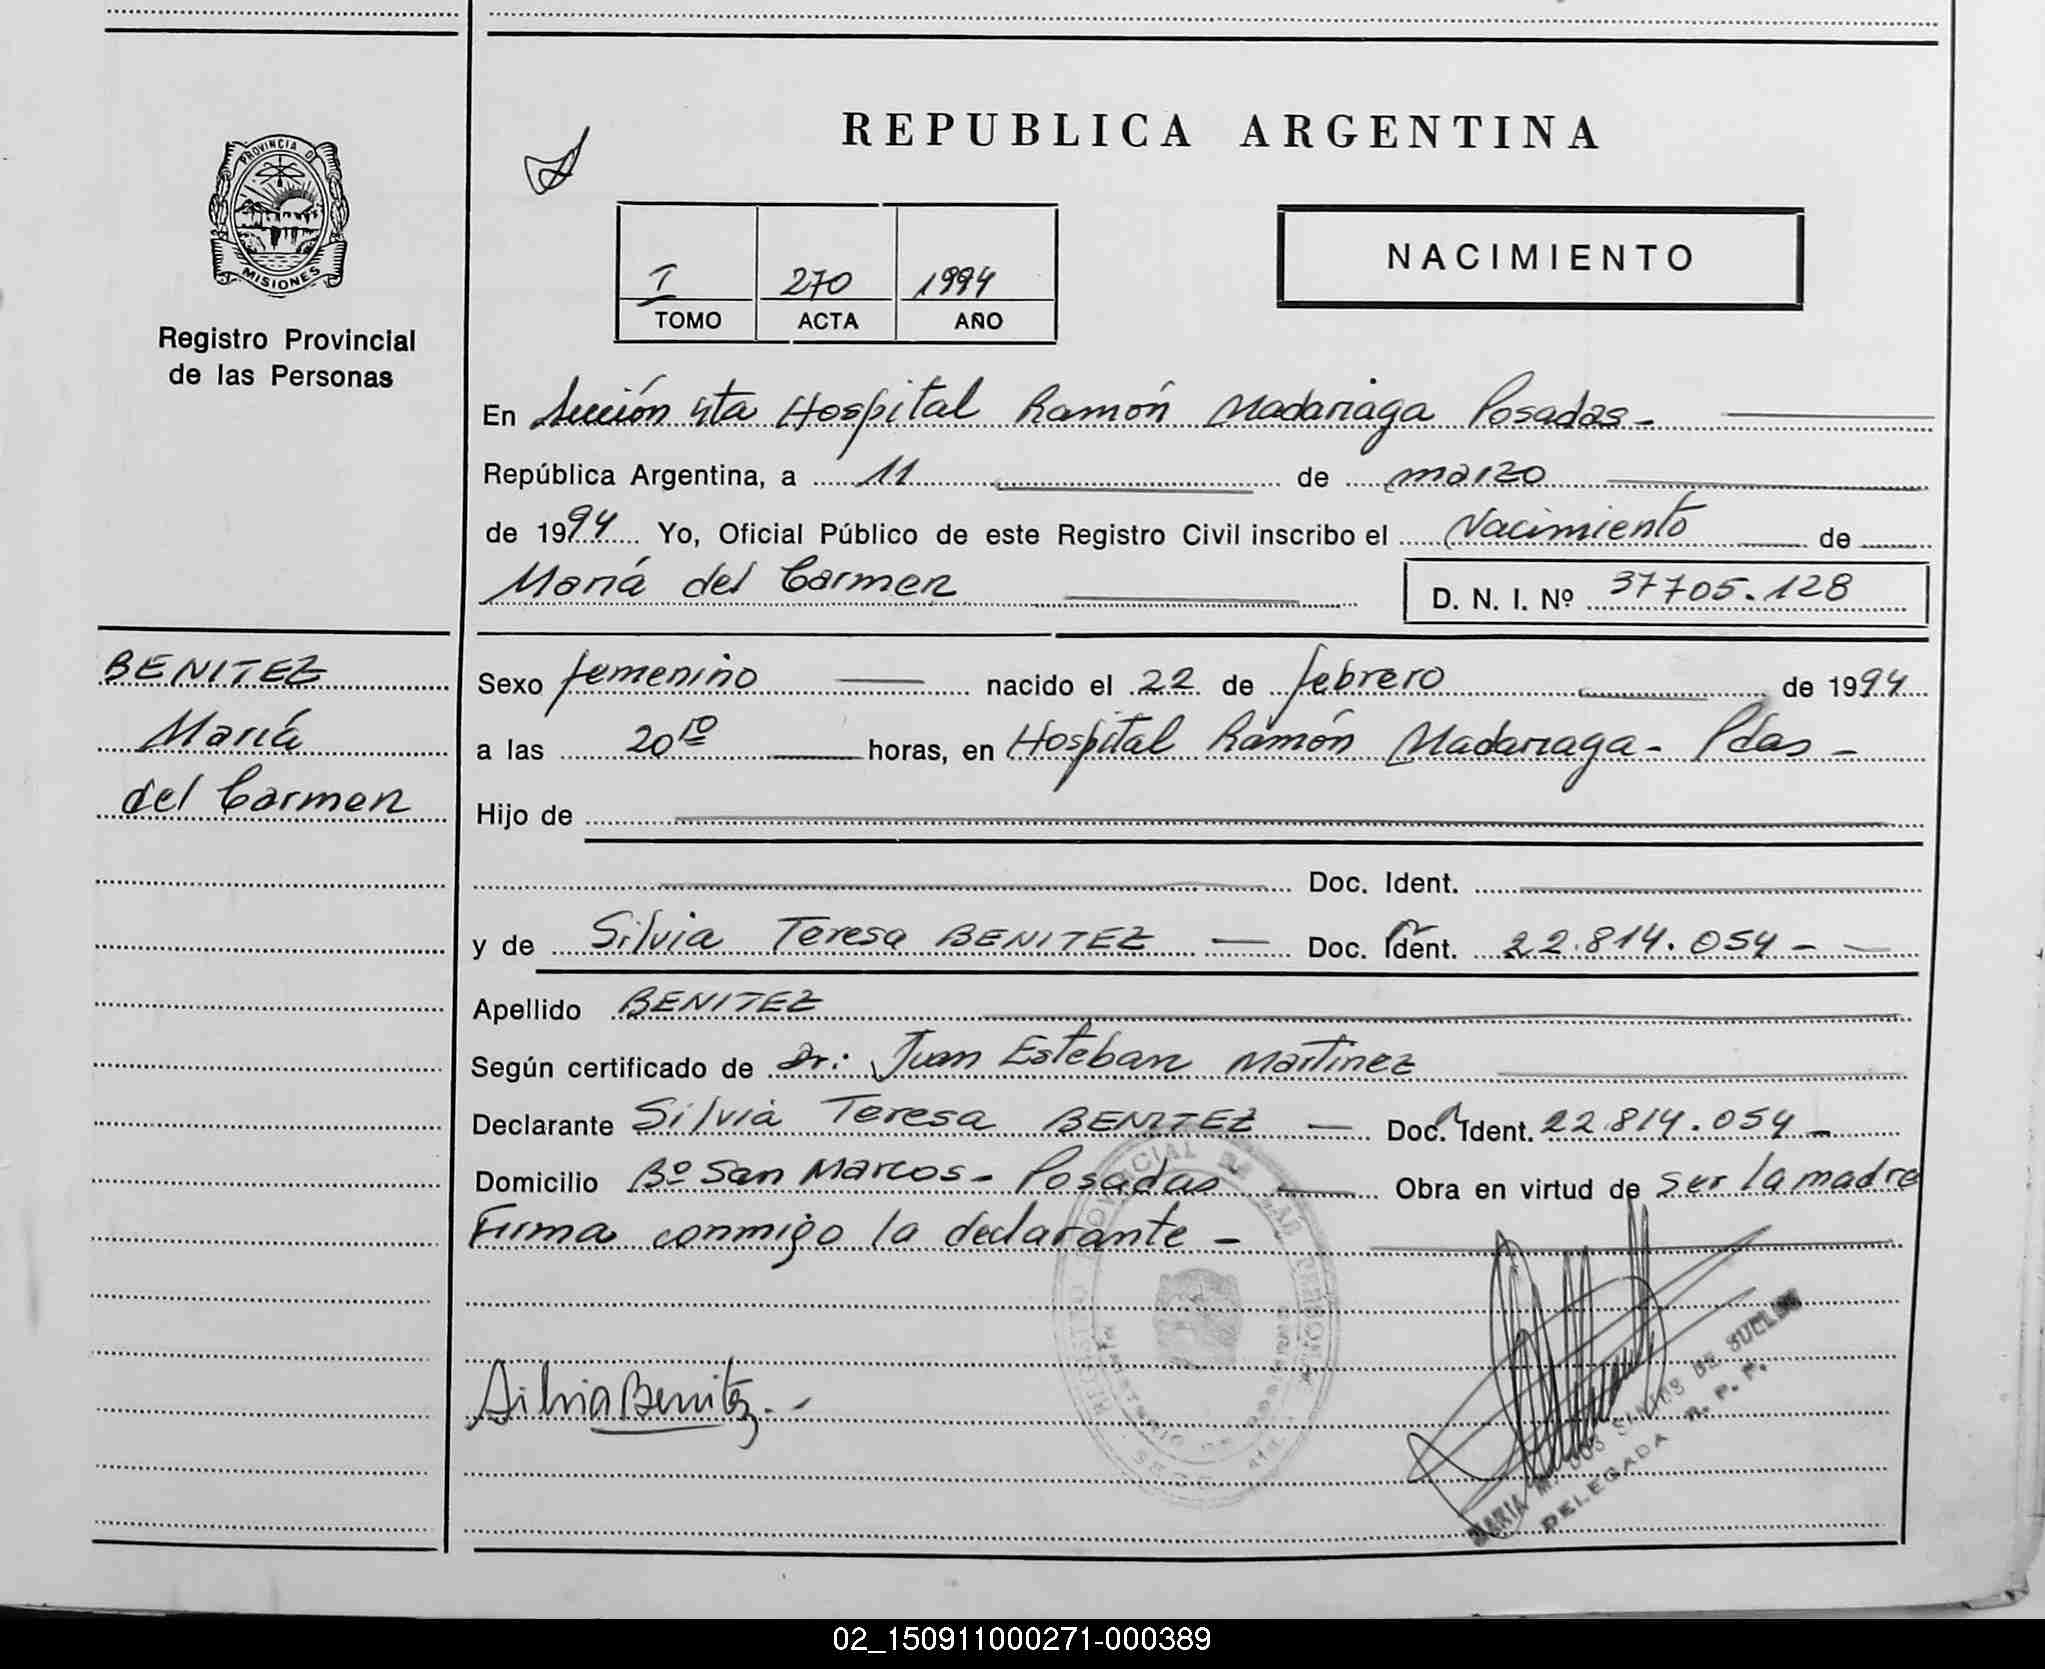 REPUBLICA ARGENTINA
PROVINCIA DE
MISIONES
Registro Provincial
de las Personas
NACIMIENTO
I 270 1994
TOMO ACTA AÑO
En Sección 4ta Hospital Ramón Madariaga Posadas-
República Argentina, a 11 de marzo
de 1994 Yo, Oficial Público de este Registro Civil inscribo el Nacimiento de
María del Carmen D. N. I. Nº 37705.128
BENITEZ
María
del Carmen
Sexo femenino nacido el 22 de febrero de 1994
a las 20 10 horas, en Hospital Ramón Madariaga - Pdas -
Hijo de
Doc. Ident.
y de Silvia Teresa BENITEZ — Doc. Ident. 22.814.054 -
Apellido BENITEZ
Según certificado de Dr: Juan Esteban Martinez
Declarante Silvia Teresa BENITEZ — Doc. Ident. 22.814.054 -
Domicilio Bº San Marcos - Posadas Obra en virtud de ser la madre
Firma conmigo la declarante -
Silvia Benitez.-
REGISTRO PROVINCIAL DE LAS PERSONAS
MARIA M. DOS SANTOS DE
DELEGADA R. P. P.
02_150911000271-000389